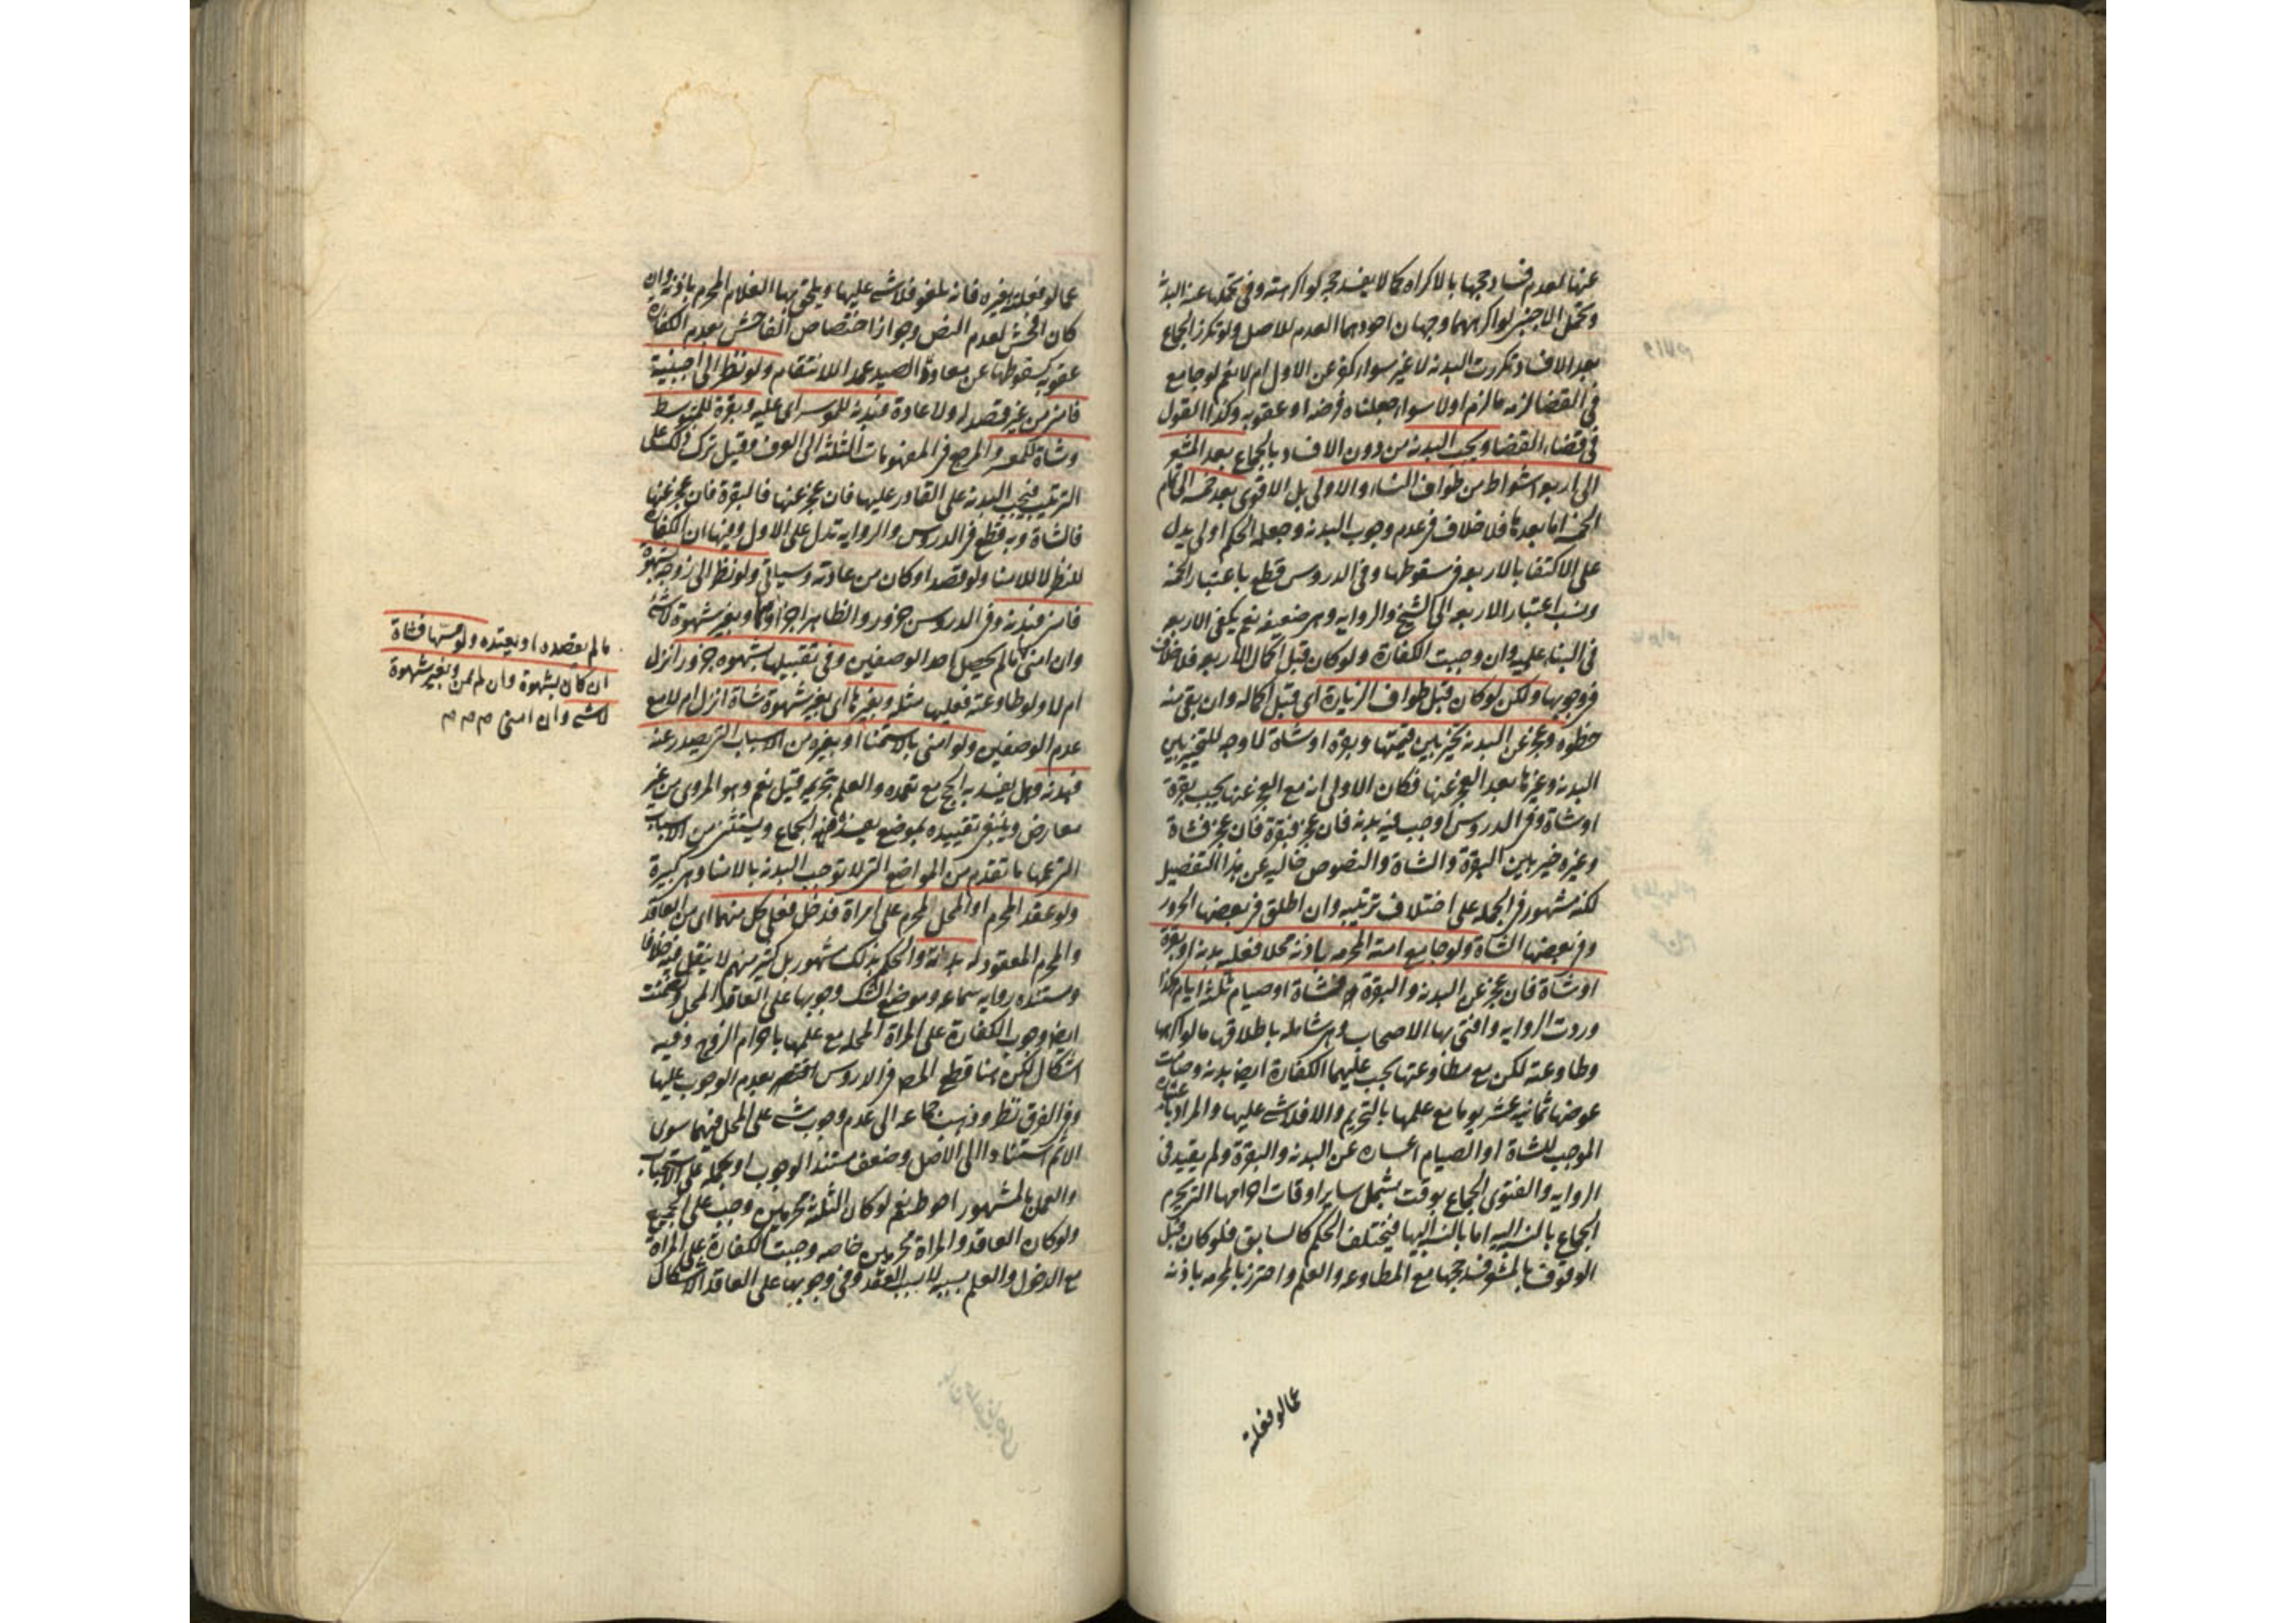 عنها لعدم فساد حجها بالاكراه كما لا يفسد حجه لو اكرهته وفى تحملها عنه البدنة
وتحمل الاجنبى لو اكرههما وجهان اجودهما العدم للاصل ولو تكرر الجماع
بعد الافساد تكررت البدنه لا غير سواء كفر عن الاول ام لا نعم لو جامع
فى القضا لزمه ما لزم اولا سواء جعلناه فرضه او عقوبه وكذا القول
فى قضاء القضا ويجب البدنه من دون الافساد بالجماع بعد المشعر
الى اربعه اشواط من طواف النساء والاولى بل الاقوى بعد خمسه الى تمام
الخمسه اما بعدها فلا خلاف فى عدم وجوب البدنه وجعله الحكم اولى يدل
على الاكتفا بالاربعه فى سقوطها وفى الدروس قطع باعتبار الخمسه
ونسب اعتبار الاربعه الى الشيخ والروايه وهى ضعيفه نعم يكفى الاربعه
فى البناء عليه وان وجبت الكفارة ولو كان قبل اكمال الاربعه فلا خلاف
فى وجوبها ولكن لو كان قبل طواف الزيارة اى قبل اكماله وان بقى منه
خطوه وعجز عن البدنه تخير بين قيمتها وبقرة او شاة لا وجه للتخيير بين
البدنه وغيرها بعد العجز عنها فكان الاولى انه مع العجز عنها يجب بقرة
او شاة وفى الدروس اوجب فيه بدنه فان عجز فبقرة فان عجز فشاة
وغيره خير بين البقرة والشاة والنصوص خاليه عن هذا التفصيل
لكنه مشهور فى الجمله على اختلاف ترتيبه وان اطلق فى بعضها الجزور
وفى بعضها الشاة ولو جامع امته المحرمه باذنه محلا فعليه بدنه او بقرة
او شاة فان عجز عن البدنه والبقرة فشاة او صيام ثلثه ايام هكذا
وردت الروايه وافتى بها الاصحاب وهى شامله باطلاقها ما لو اكرهها
وطاوعته لكن مع مطاوعتها يجب عليهما الكفارة ايضا بدنه وصامت
عوضها ثمانيه عشر يوما مع علمها بالتحريم والا فلا شى عليها والمراد باعساره
الموجب للشاة او الصيام اعساره عن البدنه والبقرة ولم يقيد فى
الروايه والفتوى الجماع بوقت يشمل ساير اوقات احرامها التى يحرم
الجماع بالنسبه اليه اما بالنسبه اليها فيختلف الحكم كالسابق فلو كان قبل
الوقوف بالمشعر فسد حجها مع المطاوعه والعلم واحترز بالمحرمه باذنه
عما لو فعلته
عما لو فعلته بغيره فانه يلغو فلا شى عليها ويلحق بها الغلام المحرم باذنه وان
كان افحش لعدم النص وجواز اختصاص الفاحش بعدم الكفارة
عقوبه كسقوطها عن معاود الصيد عمدا للانتقام ولو نظر الى اجنبية
فامنى من غير قصد له ولا عادة فبدنه للموسر اى عليه وبقرة للمتوسط
وشاة للمعسر والمرجع فى المفهومات الثلثه الى العرف وقيل ترك ذلك على
الترتيب فتجب البدنه على القادر عليها فان عجز عنها فالبقرة فان عجز عنها
فالشاة وبه قطع فى الدروس والروايه تدل على الاول وفيها ان الكفارة
للنظر لا للامنا ولو قصد او كان من عادته وسياتى ولو نظر الى زوجه بشهوة
فامنى فبدنه وفى الدروس جزور والظاهر اجزاوها وبغير شهوة لا شى
وان امنى ما لم يحصل احد الوصفين وفى تقبيلها بشهوه جزور انزل
ام لا ولو طاوعته فعليها مثله وبغيرها اى بغير شهوة شاة انزل ام لا مع
عدم الوصفين ولو امنى بالاستمنا او بغيره من الاسباب التى يصدر عنه
فبدنه وهل يفسد به الحج مع تعمده والعلم بتحريمه قيل نعم وهو المروى من غير
معارض وينبغى تقييده بموضع يفسده الجماع ويستثنى من الاسباب
التى عمها ما تقدم من المواضع التى لا توجب البدنه بالامنا وهى كبيرة
ولو عقد المحرم او المحل لمحرم على امراة فدخل فعلى كل منهما اى من العاقد
والمحرم المعقود له بدنة والحكم بذلك مشهور بل كثير منهم لا ينقل فيه خلافا
ومستنده روايه سماعه وموضع الشك وجوبها على العاقد المحل وتضمنت
ايضا وجوب الكفارة على المراة المحله مع علمها باحرام الزوج وفيه
اشكال لكن هنا قطع المص فى الدروس بعدم الوجوب عليها
وفى الفرق نظر وذهب جماعه الى عدم وجوب شى على المحل فيهما سوى
الاثم استنادا الى الاصل وضعف مستند الوجوب او بحمله على الاستحباب
والعمل بالمشهور احوط نعم لو كان الثلثه محرمين وجبت على الجميع
ولو كان العاقد والمراة محرمين خاصه وجبت الكفارة على المراة
مع الدخول والعلم بسببه لا بسبب العقد وفى وجوبها على العاقد الاشكال
ما لم يقصده او يعتده ولو مسها فشاة
ان كان بشهوة وان لم يمن وبغير شهوة
لا شى وان امنى م م م